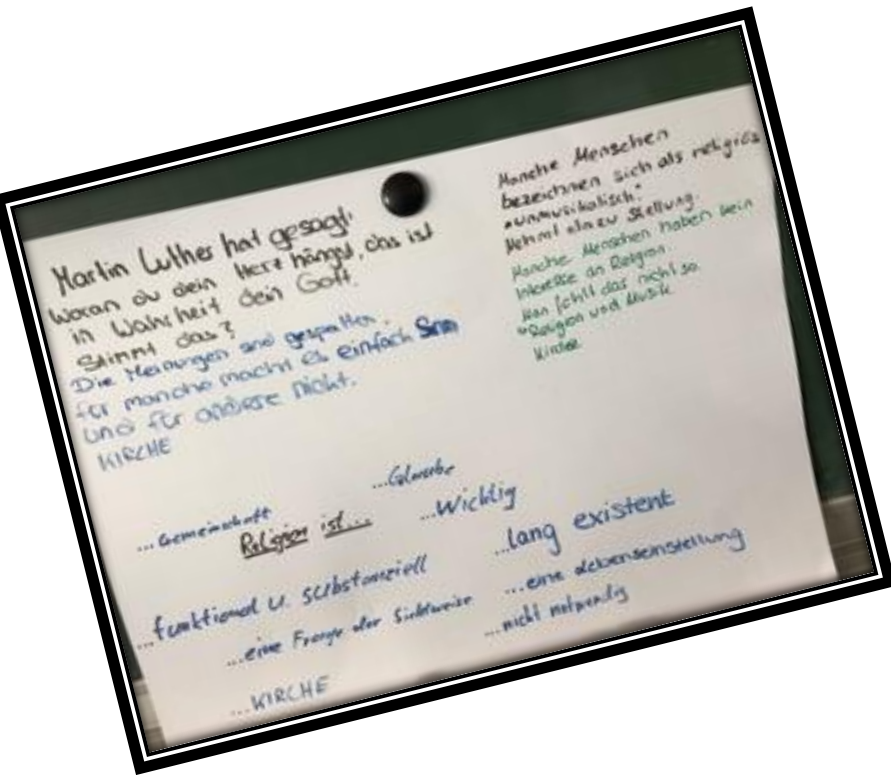 Martin Luther hat gesagt:
Woran du dein Herz hängst, das ist
in Wahrheit dein Gott.
Stimmt das?
Die Meinungen sind gespalten.
für manche macht es einfach Sinn
und für andere nicht.
KIRCHE
Manche Menschen
bezeichnen sich als religiös
"unmusikalisch".
Nehmt dazu Stellung.
Manche Menschen haben kein
Interesse an Religion.
Man fühlt das nicht so.
Religion und Musik
Kirche
...Glaube
...Gemeinschaft
Religion ist...
...Wichtig
...lang existent
...funktional u. substanziell
...eine Lebenseinstellung
...eine Frage der Sichtweise
...nicht notwendig
...KIRCHE